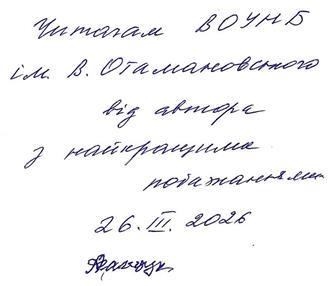 Читачам ВОУНБ
ім. В. Отамановського
від автора
з найкращими
побажаннями
26. III. 2026